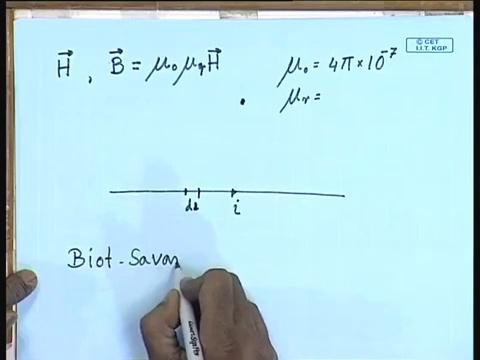 © CET
I.I.T. KGP
H⃗ , B⃗ = μ₀μᵣH⃗
μ₀ = 4π×10⁻⁷
μᵣ =
dl
i
Biot-Savar